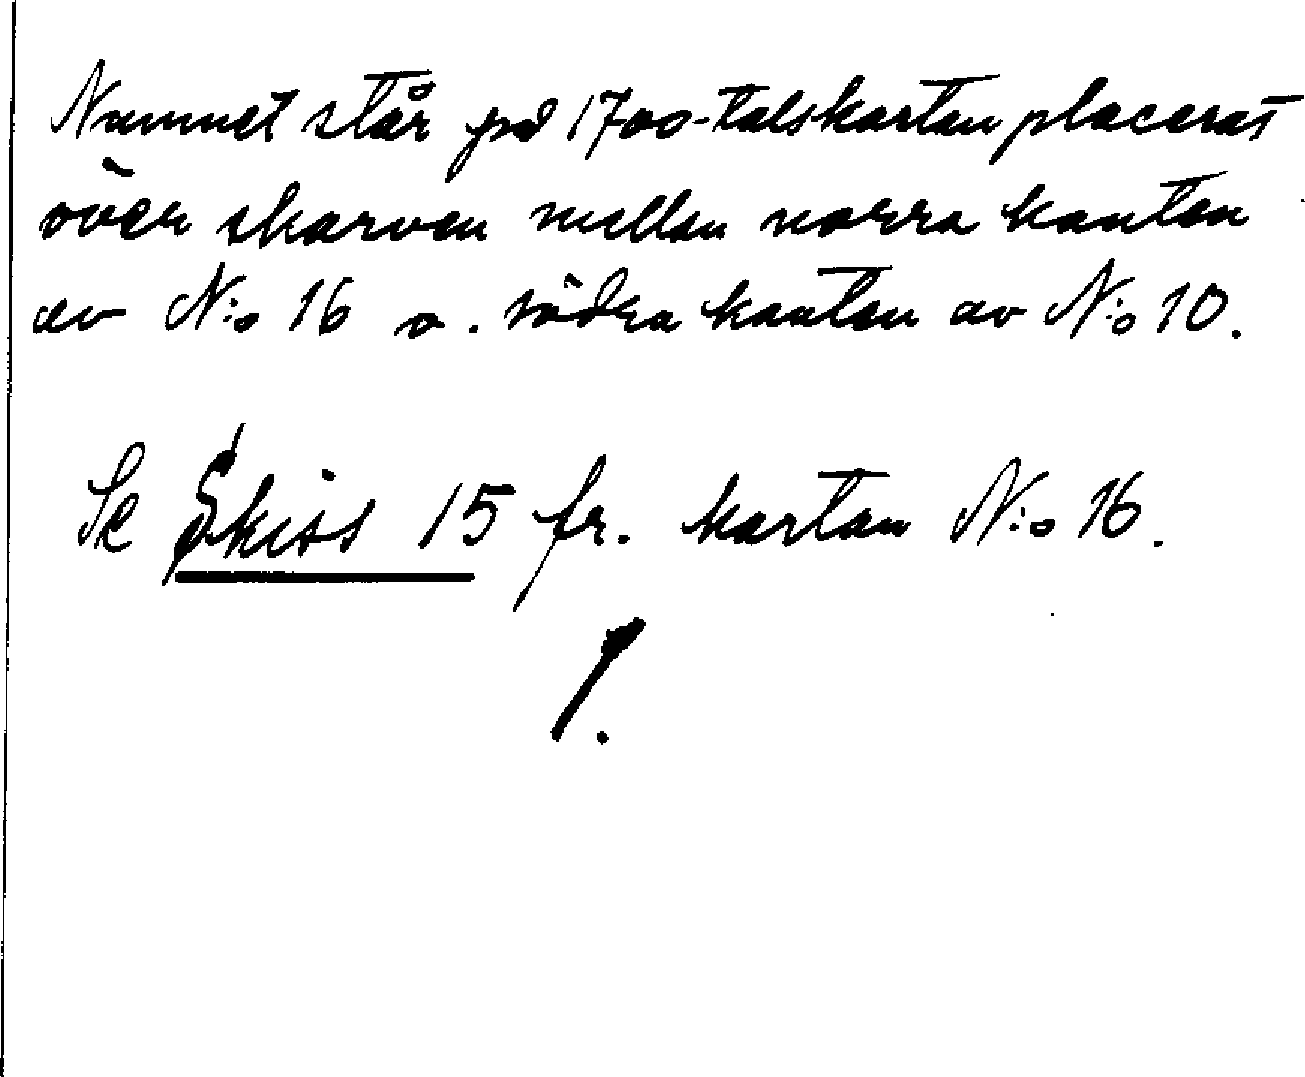 Namnet står på 1700-talskartan placerat
över skarven mellan norra kanten
av N:o 16 o. södra kanten av N:o 10.
Se Skiss 15 fr. kartan N:o 16.